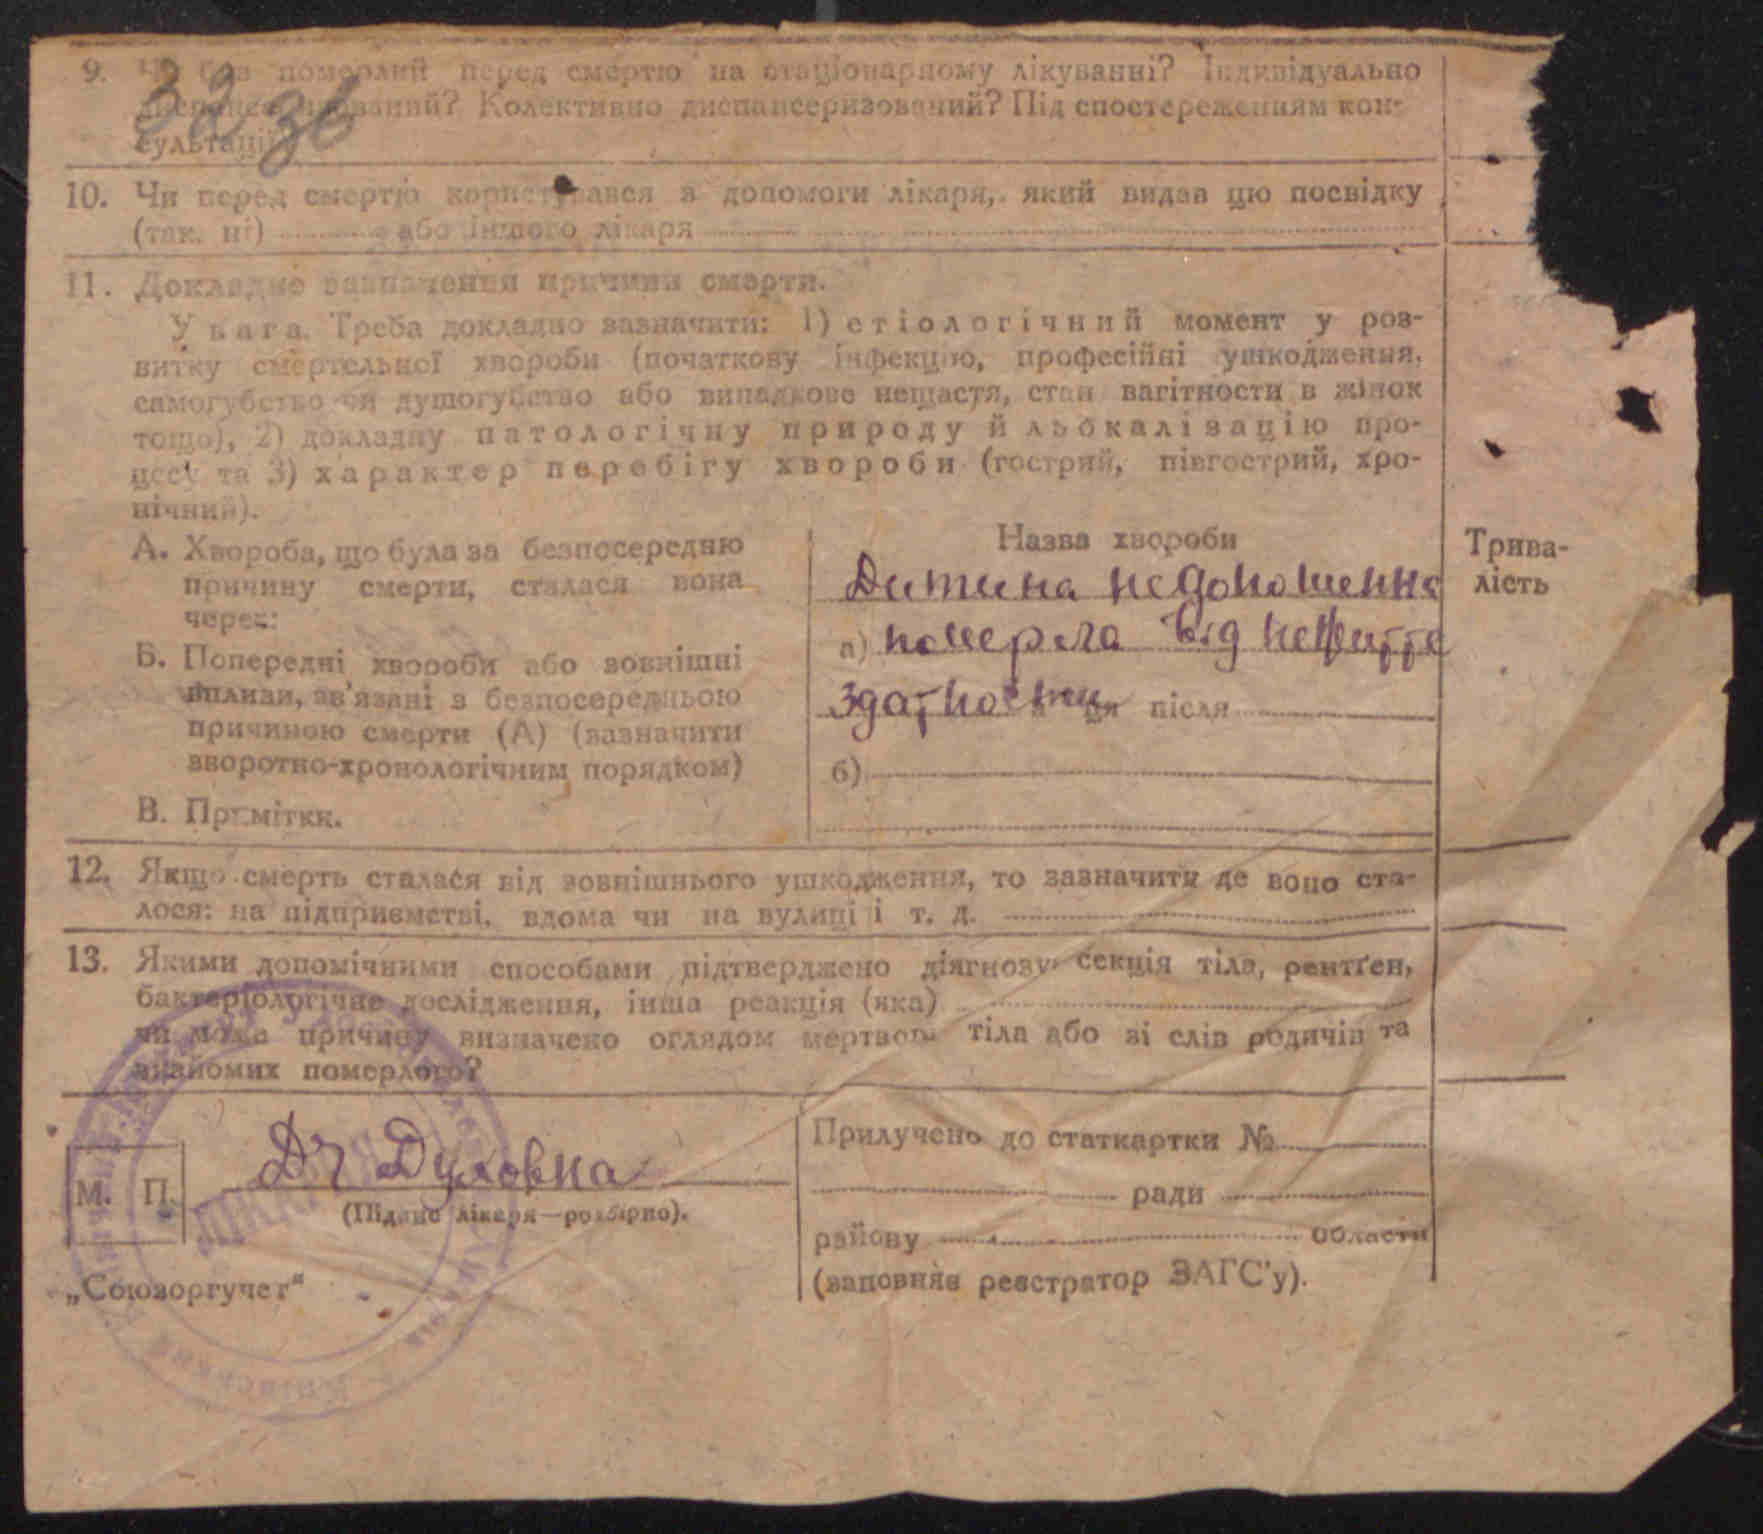 9. Чи був померлий перед смертю на стаціонарному лікуванні? Індивідуально
диспансеризований? Колективно диспансеризований? Під спостереженням кон-
сультації
10. Чи перед смертю користувався з допомоги лікаря, який видав цю посвідку
(так. ні) або іншого лікаря
11. Докладне зазначення причини смерти.
Увага. Треба докладно зазначити: 1) етіологічний момент у роз-
витку смертельної хвороби (початкову інфекцію, професійні ушкодження,
самогубство чи душогубство або випадкове нещастя, стан вагітности в жінок
тощо), 2) докладну патологічну природу й льокалізацію про-
цесу та 3) характер перебігу хвороби (гострий, півгострий, хро-
нічний).
Назва хвороби
Трива-
лість
А. Хвороба, що була за безпосередню
причину смерти, сталася вона
через:
Дитина недоношенна
а) померла від нежиттє
здатности ця після
б)
Б. Попередні хвороби або зовнішні
впливи, зв'язані з безпосередньою
причиною смерти (А) (зазначити
зворотно-хронологічним порядком)
В. Примітки.
12. Якщо смерть сталася від зовнішнього ушкодження, то зазначити де воно ста-
лося: на підприємстві, вдома чи на вулиці і т. д.
13. Якими допоміжними способами підтверджено діягнозу: секція тіла, рентґен,
бактеріологічне дослідження, інша реакція (яка)
чи може причину визначено оглядом мертвого тіла або зі слів родичів та
знайомих померлого?
М. П.
Др
(Підпис лікаря—розбірно).
„Союзоргучет"
Прилучено до статкартки №
ради
району області
(заповняє реєстратор ЗАГС'у).